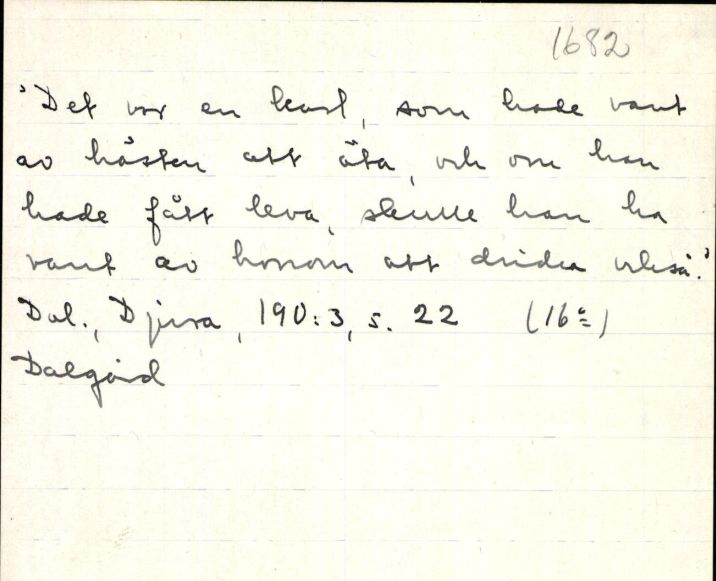 1682
'Det var en karl, som hade vant
av hästen att äta, och om han
hade fått leva, skulle han ha
vant av honom att dricka också.'
Dal., Djura, 190:3, s. 22 (16
Dalgård